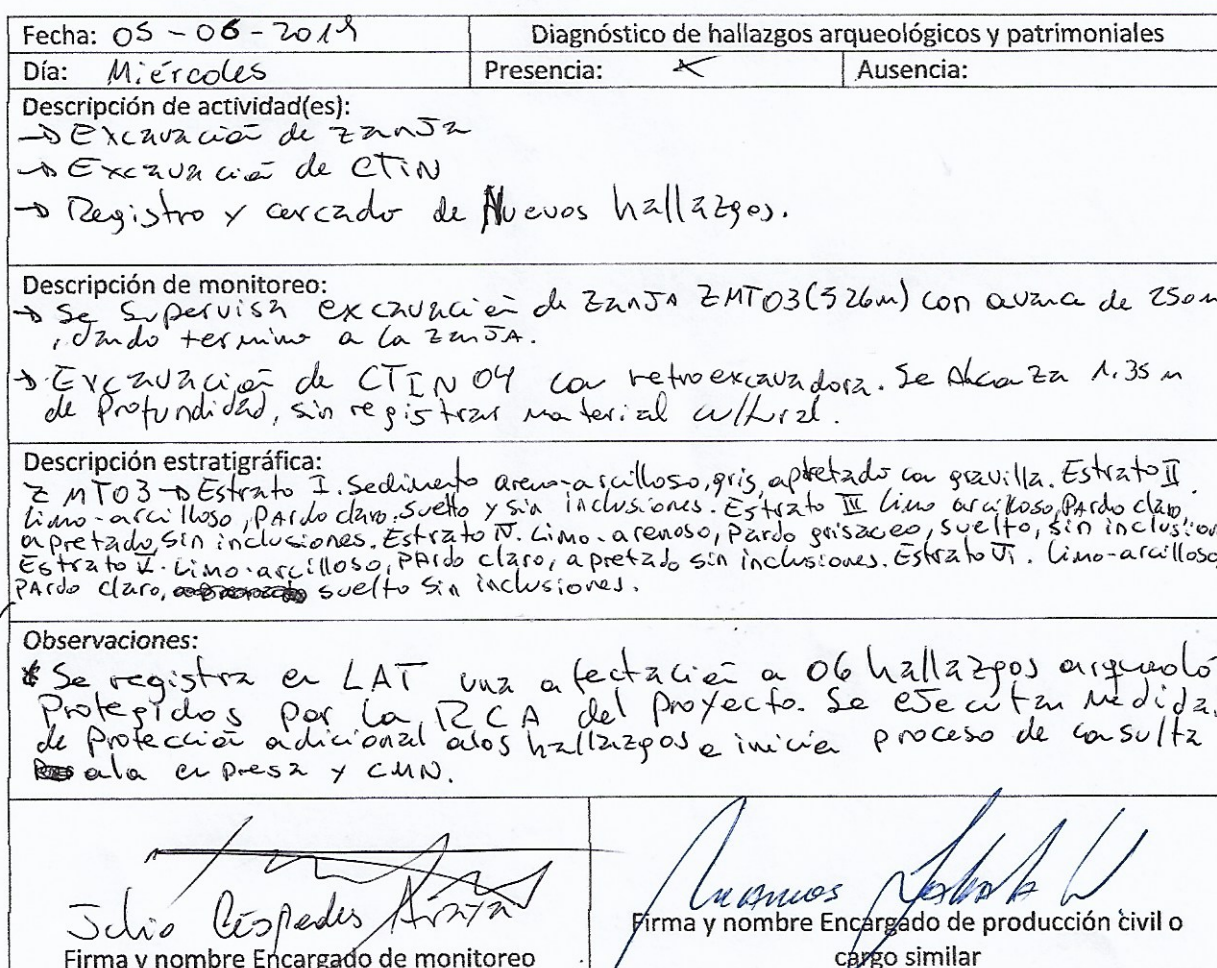 Fecha: 05-06-2019 Diagnóstico de hallazgos arqueológicos y patrimoniales
Día: Miércoles Presencia: X Ausencia:
Descripción de actividad(es):
→ Excavación de zanja
→ Excavación de CTIN
→ Registro y cercado de Nuevos hallazgos.
Descripción de monitoreo:
→ Se supervisa excavación de zanja ZMT03 (526m) con avance de 250m
, dando termino a la zanja.
→ Excavación de CTIN 04 con retroexcavadora. Se Alcanza 1.35 m
de profundidad, sin registrar material cultural.
Descripción estratigráfica:
ZMT03 → Estrato I. Sedimento areno-arcilloso, gris, apretado con gravilla. Estrato II
Limo-arcilloso, pardo claro, suelto y sin inclusiones. Estrato III Limo arcilloso, pardo claro,
apretado, sin inclusiones. Estrato IV. Limo-arenoso, pardo grisaceo, suelto, sin inclusion
Estrato V. Limo-arcilloso, pardo claro, apretado sin inclusiones. Estrato VI. Limo-arcilloso,
pardo claro, suelto sin inclusiones.
Observaciones:
* Se registra en LAT una afectación a 06 hallazgos arqueoló
Protegidos por la RCA del proyecto. Se ejecutan medida
de protección adicional a los hallazgos e inicia proceso de consulta
a la empresa y CMN.
Julio Céspedes Araya
Firma y nombre Encargado de monitoreo
Firma y nombre Encargado de producción civil o
cargo similar